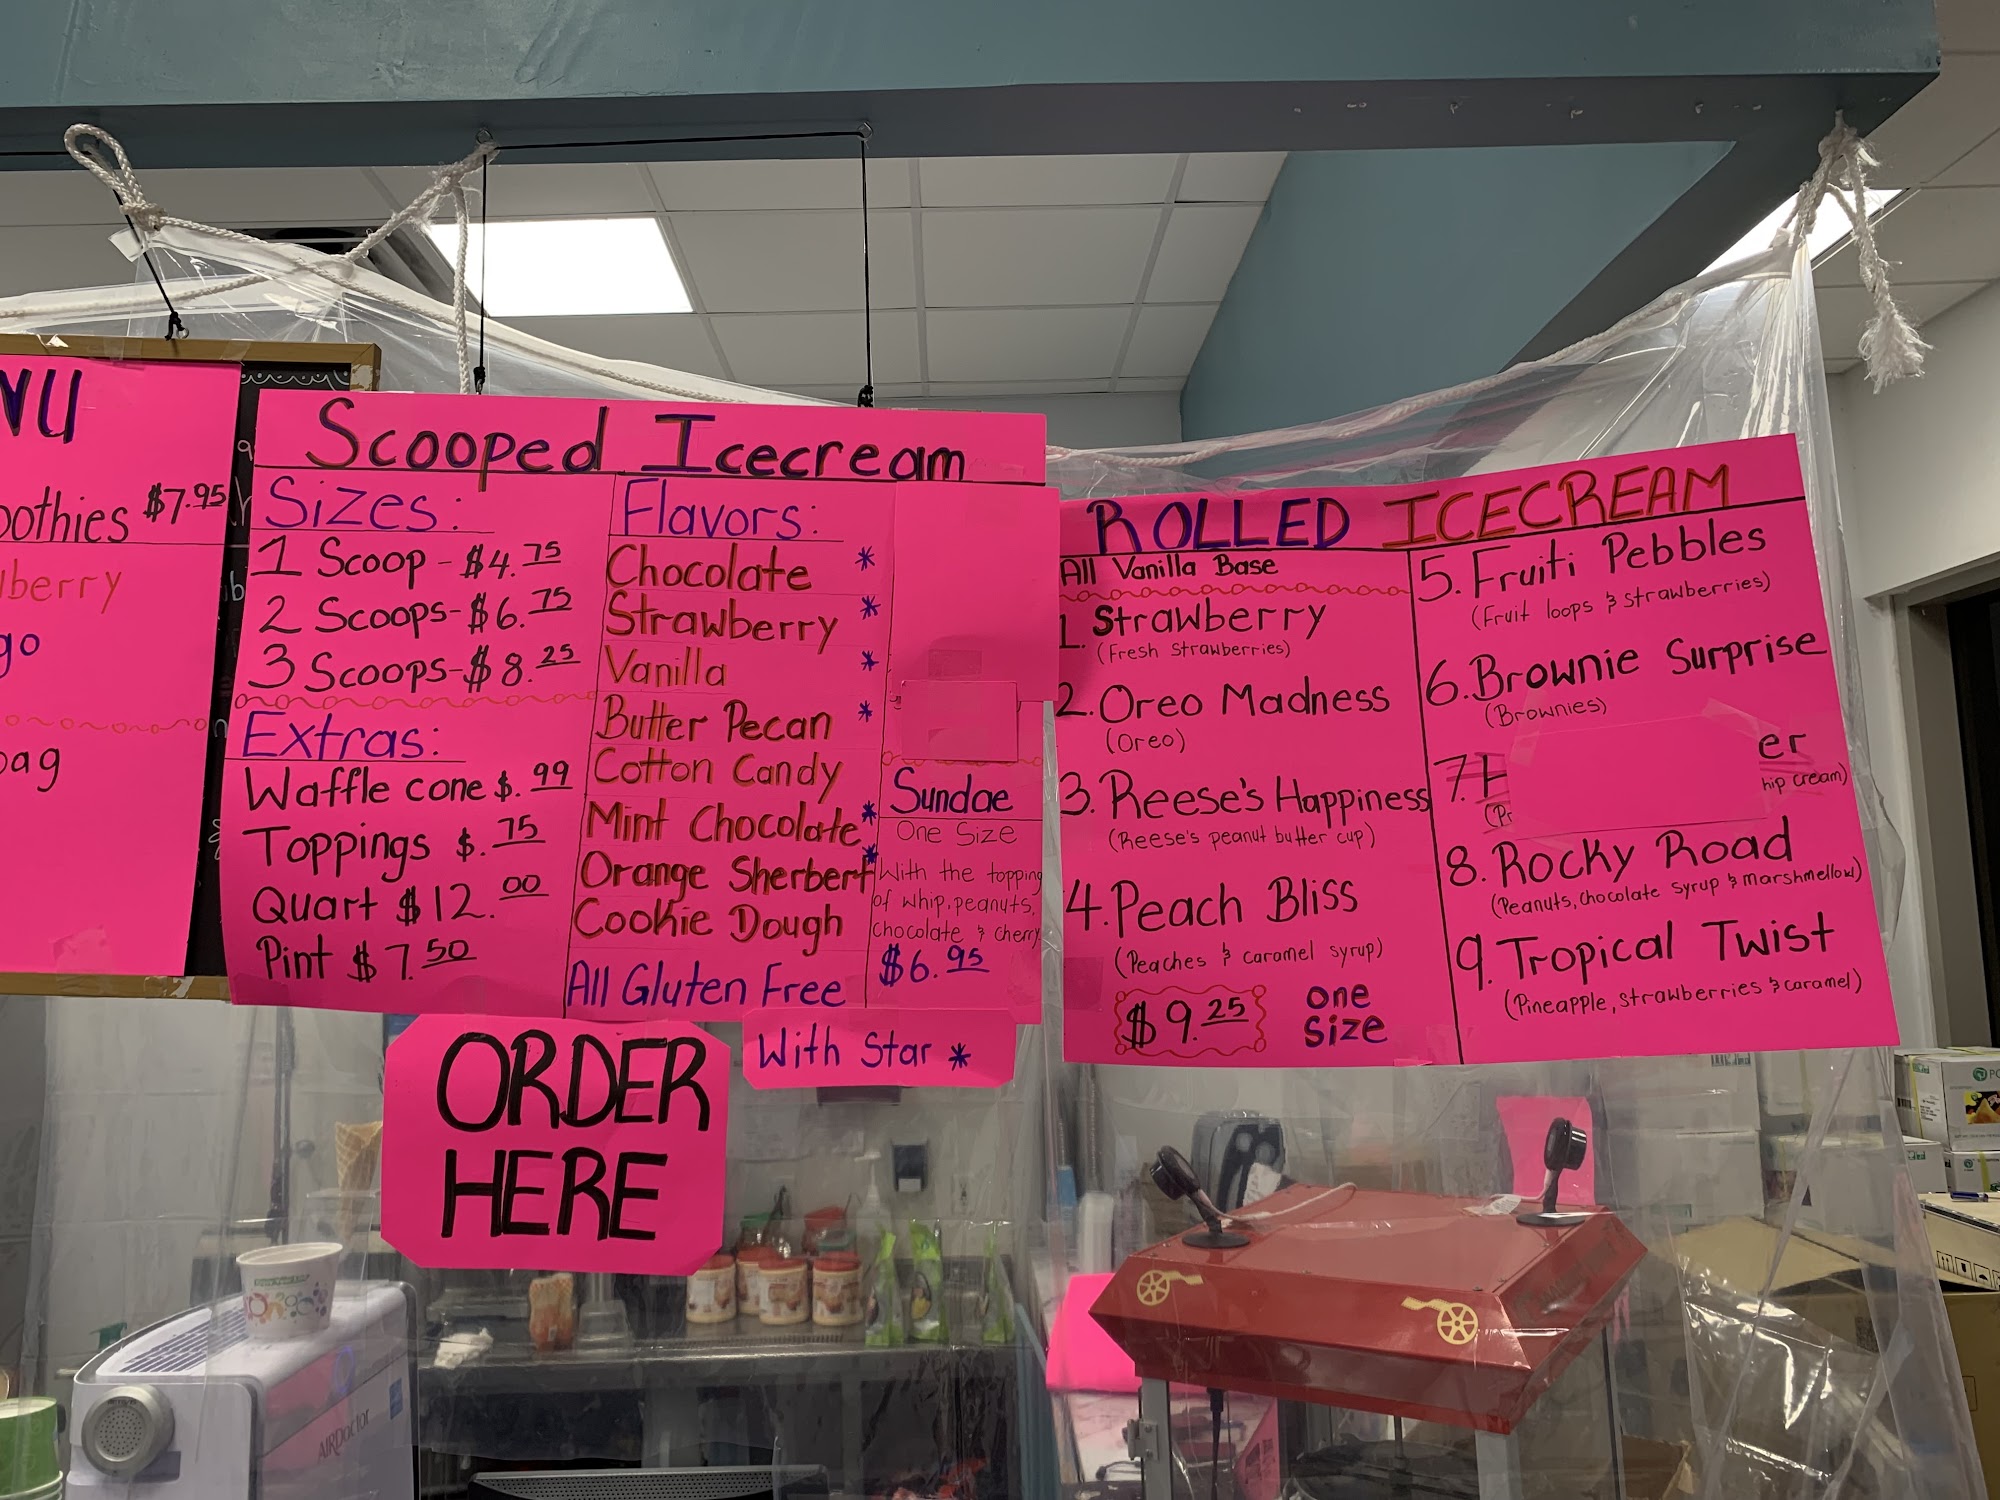 $7.95
Scooped Icecream
Sizes:
1 Scoop - $4.75
2 Scoops - $6.75
3 Scoops - $8.25
Extras:
Waffle cone $.99
Toppings $.75
Quart $12.00
Pint $7.50
Flavors:
Chocolate *
Strawberry *
Vanilla *
Butter Pecan *
Cotton Candy
Mint Chocolate *
Orange Sherbert *
Cookie Dough
All Gluten Free
With Star *
Sundae
One Size
With the topping
of whip, peanuts,
chocolate & cherry
$6.95
ORDER
HERE
ROLLED ICECREAM
All Vanilla Base
1. Strawberry
(Fresh Strawberries)
2. Oreo Madness
(Oreo)
3. Reese's Happiness
(Reese's peanut butter cup)
4. Peach Bliss
(Peaches & caramel syrup)
$9.25 one
size
5. Fruiti Pebbles
(Fruit loops & strawberries)
6. Brownie Surprise
(Brownies)
7.
cream)
8. Rocky Road
(Peanuts, chocolate syrup & marshmellow)
9. Tropical Twist
(Pineapple, strawberries & caramel)
AIRDOCTOR